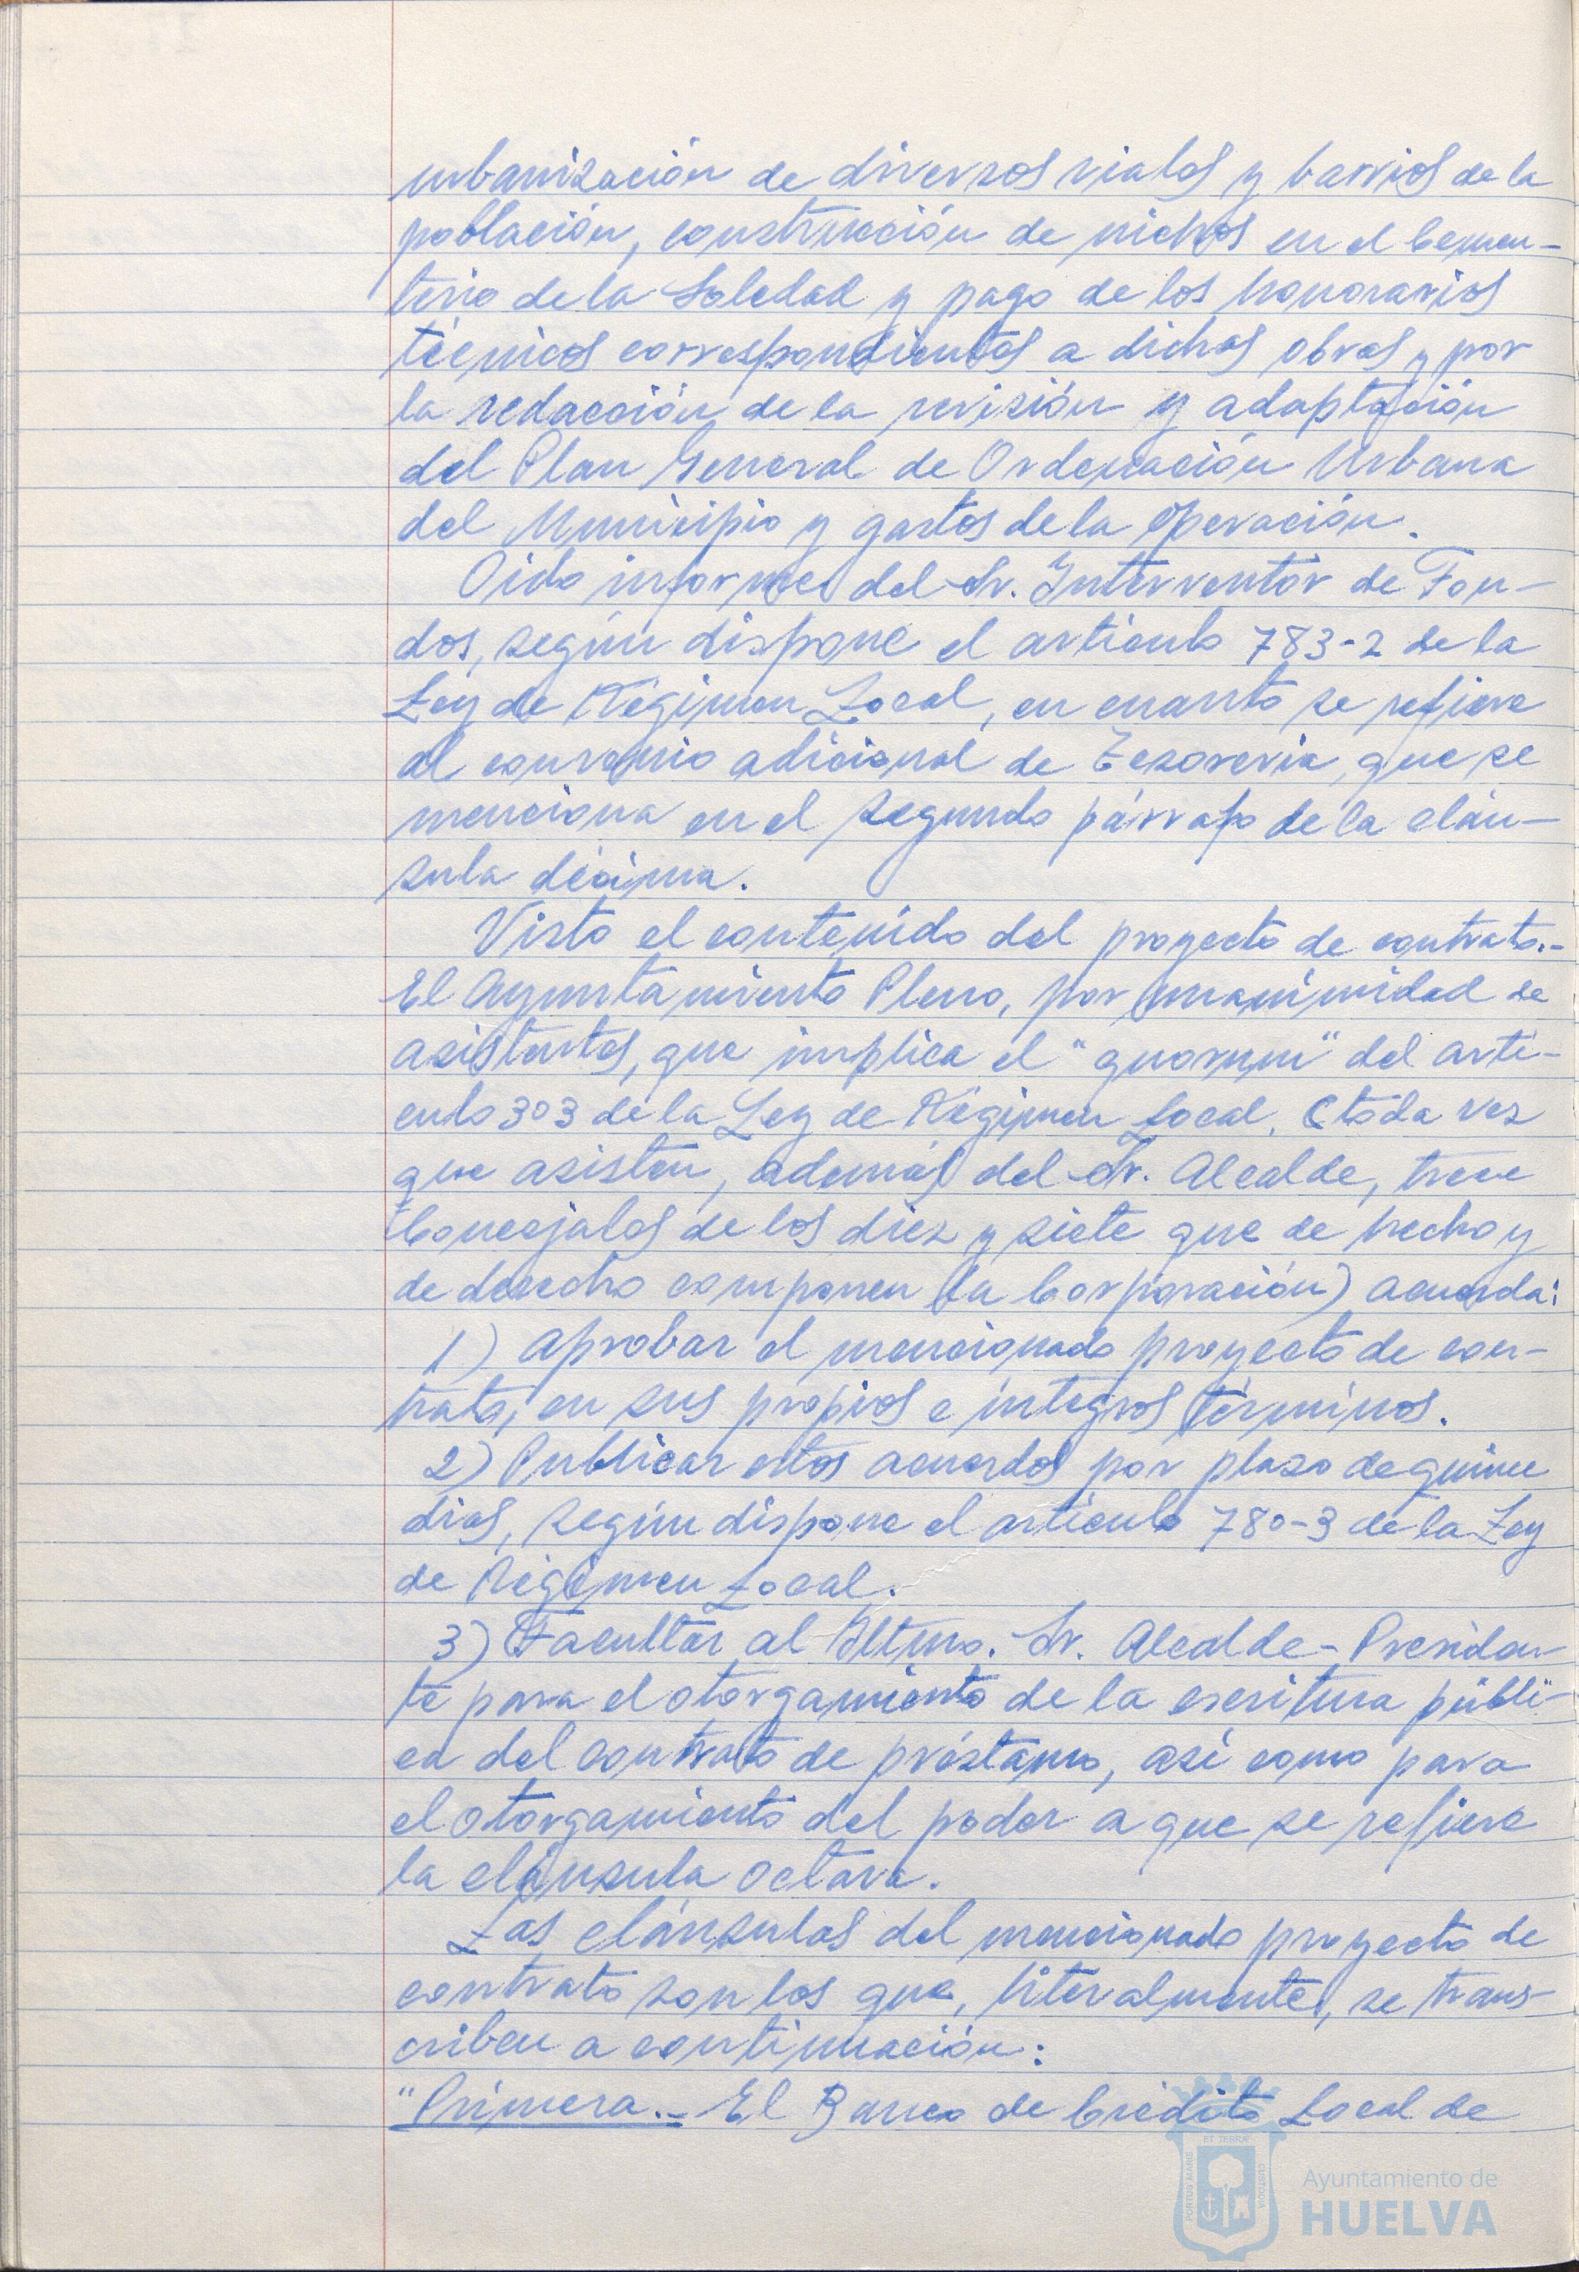 urbanización de diversos viales y barrios de la
población, construcción de nichos en el Cemen-
terio de la Soledad y pago de los honorarios
técnicos correspondientes a dichas obras y por
la redacción de la revisión y adaptación
del Plan General de Ordenación Urbana
del Municipio y gastos de la operación.
Oido informe del Sr. Interventor de Fon-
dos, según dispone el artículo 783-2 de la
Ley de Régimen Local, en cuanto se refiere
al convenio adicional de Tesorería, que se
menciona en el segundo párrafo de la cláu-
sula décima.
Visto el contenido del proyecto de contrato.-
El Ayuntamiento Pleno, por unanimidad de
asistentes, que implica el "quorum" del artí-
culo 303 de la Ley de Régimen Local, (toda vez
que asisten, además del Sr. Alcalde, trece
Concejales de los diez y siete que de hecho y
de derecho componen la Corporación) acuerda:
1) Aprobar el mencionado proyecto de con-
trato, en sus propios e íntegros términos.
2) Publicar estos acuerdos por plazo de quince
días, según dispone el artículo 780-3 de la Ley
de Régimen Local.
3) Facultar al Iltmo. Sr. Alcalde-Presiden-
te para el otorgamiento de la escritura públi-
ca del contrato de préstamo, así como para
el otorgamiento del poder a que se refiere
la cláusula octava.
Las cláusulas del mencionado proyecto de
contrato son los que, literalmente, se trans-
criben a continuación:
"Primera.- El Banco de Crédito Local de
PORTUS MARIS ET TERRAE CUSTODIA
Ayuntamiento de
HUELVA